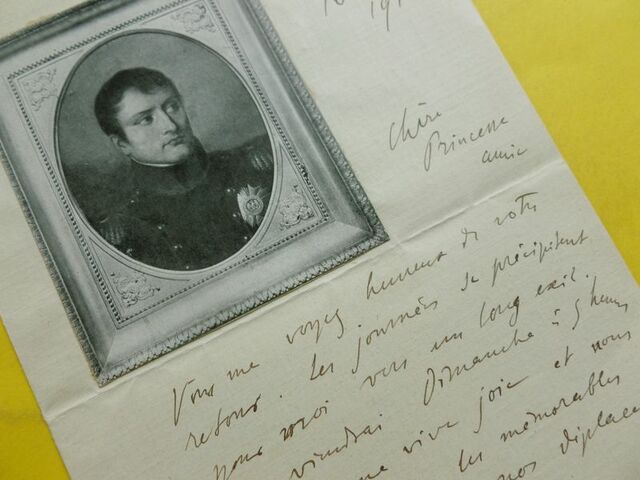 191
Chère
Princesse
amie
Vous me voyez heureux de votre
retour. Les journées se précipitent
pour moi vers un long exil.
viendrai Dimanche à 5 heures
vive joie et nous
les mémorables
nos déplace